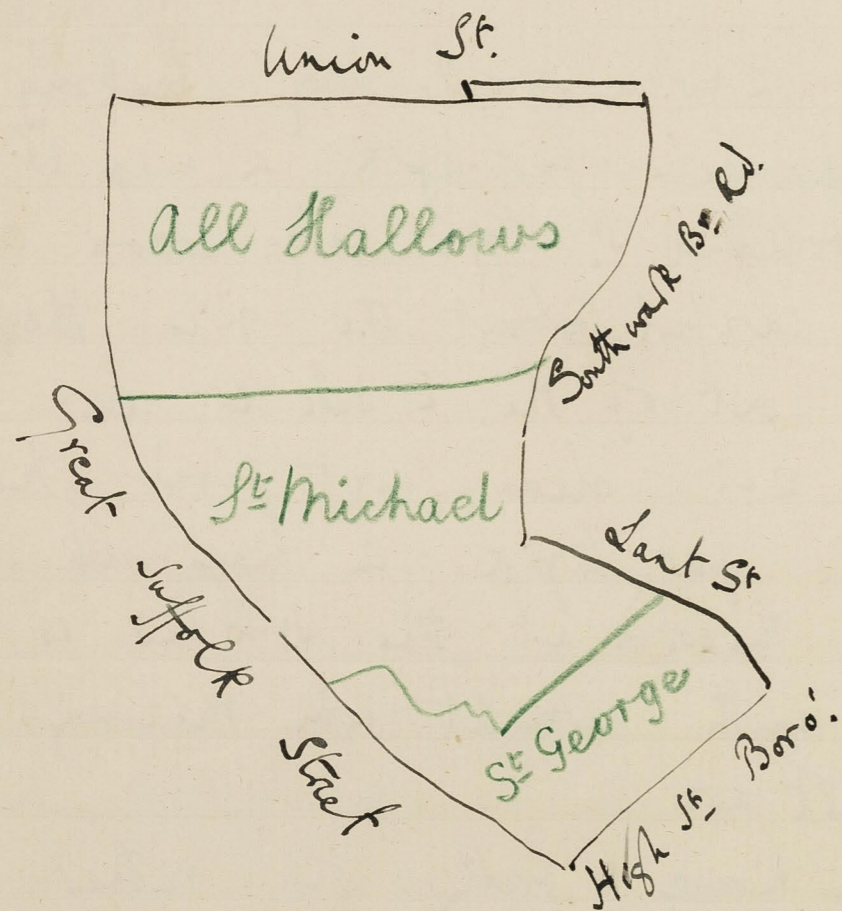 Union St.
All Hallows
Southwark Bre Rd.
Great Suffolk Street
St Michael
Lant St
St George
High St Boro'.